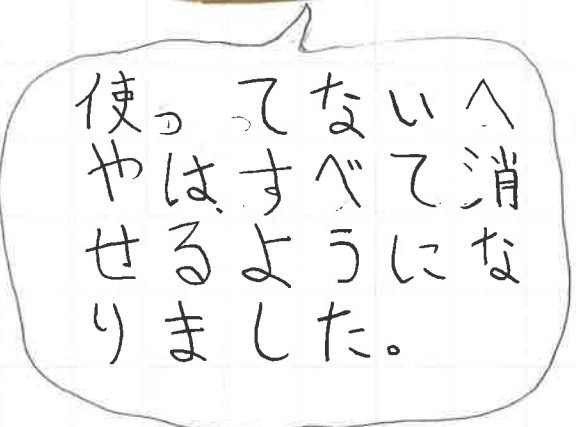 使ってないへ
やはすべて消
せるようにな
りました。